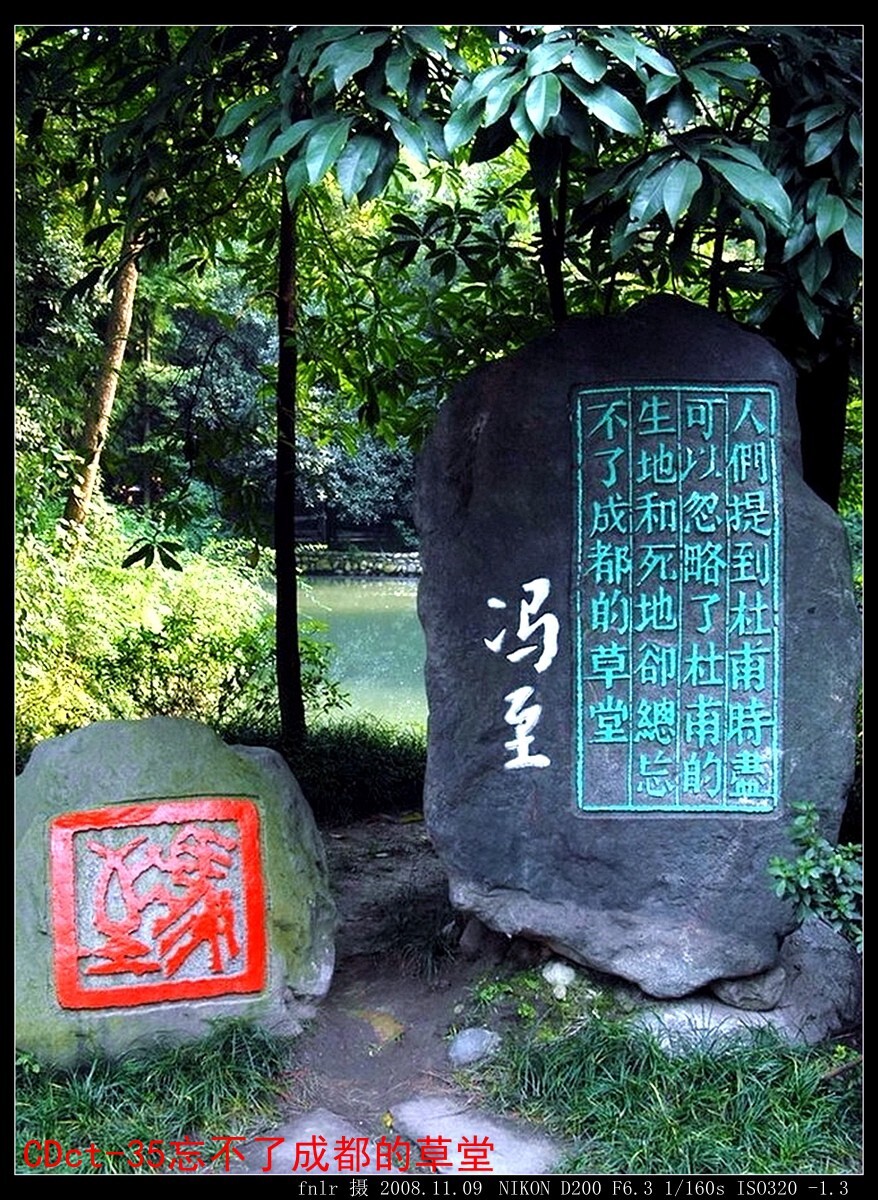 人們提到杜甫時盡
可以忽略了杜甫的
生地和死地卻總忘
不了成都的草堂
冯至
CDct-35忘不了成都的草堂
fnlr 摄 2008.11.09 NIKON D200 F6.3 1/160s ISO320 -1.3